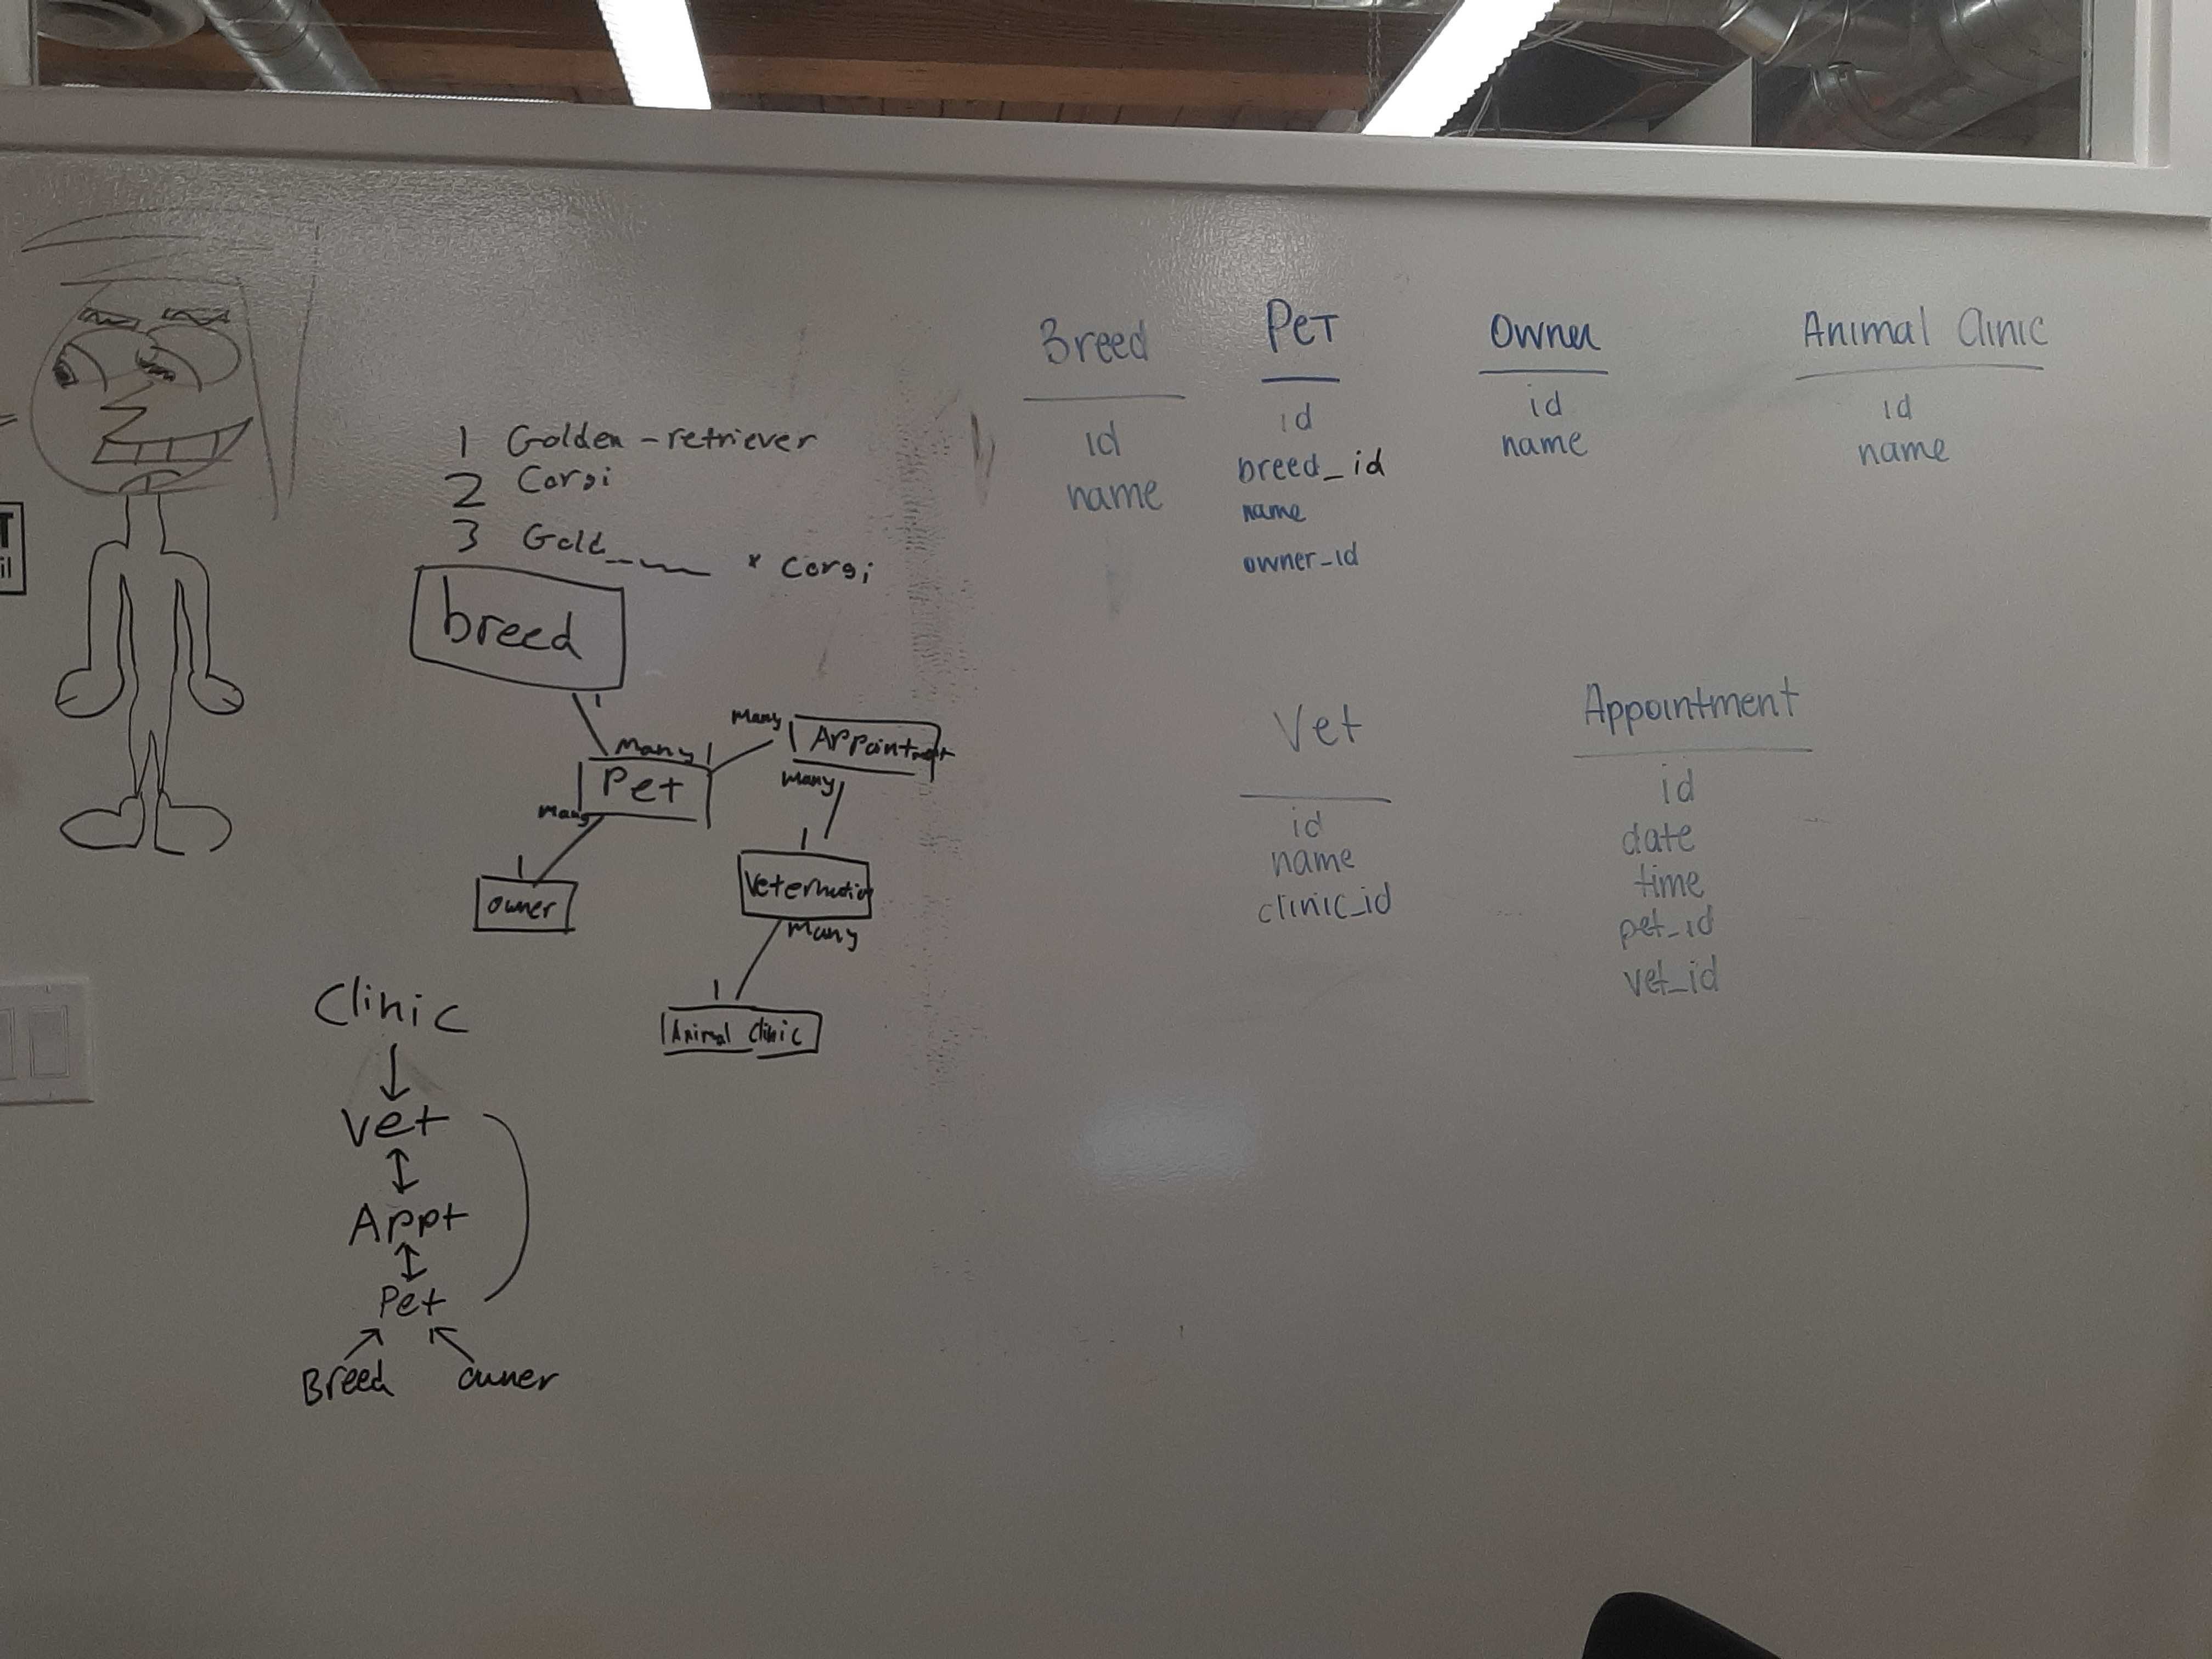 1 Golden-retriever
2 Corgi
3 Gold_ * Corgi
breed
1
Many 1
Pet
Many
1
owner
Many
Appointment
Many
1
Many
1
Animal Clinic
Clinic
Vet
Appt
Pet
Breed owner
Breed
id
name
Pet
id
breed_id
name
owner_id
Owner
id
name
Animal Clinic
id
name
Vet
id
name
clinic_id
Appointment
id
date
time
pet_id
vet_id